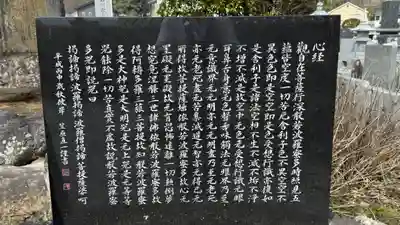 心経
觀自在菩薩行深般若波羅蜜多時照見五
蘊皆空度一切苦厄舎利子色不異空空不
異色色即是空空即是色受想行識亦復如
是舎利子是諸法空相不生不滅不垢不浄
不増不減是故空中无色无受想行識无眼
耳鼻舌身意无色聲香味觸法无眼界乃至
无意識界无无明亦无无明盡乃至无老死
亦无老死盡无苦集滅道无智亦无得以无
所得故菩提薩埵依般若波羅蜜多故心无
罣礙无罣礙故无有恐怖遠離一切顛倒夢
想究竟涅槃三世諸佛依般若波羅蜜多故
得阿耨多羅三藐三菩提故知般若波羅蜜
多是大神咒是大明咒是无上咒是无等等
咒能除一切苦真實不虚故説般若波羅蜜
多咒即説咒曰
揭諦揭諦波羅揭諦波羅僧揭諦菩提薩婆訶
平成丙申歳秋彼岸